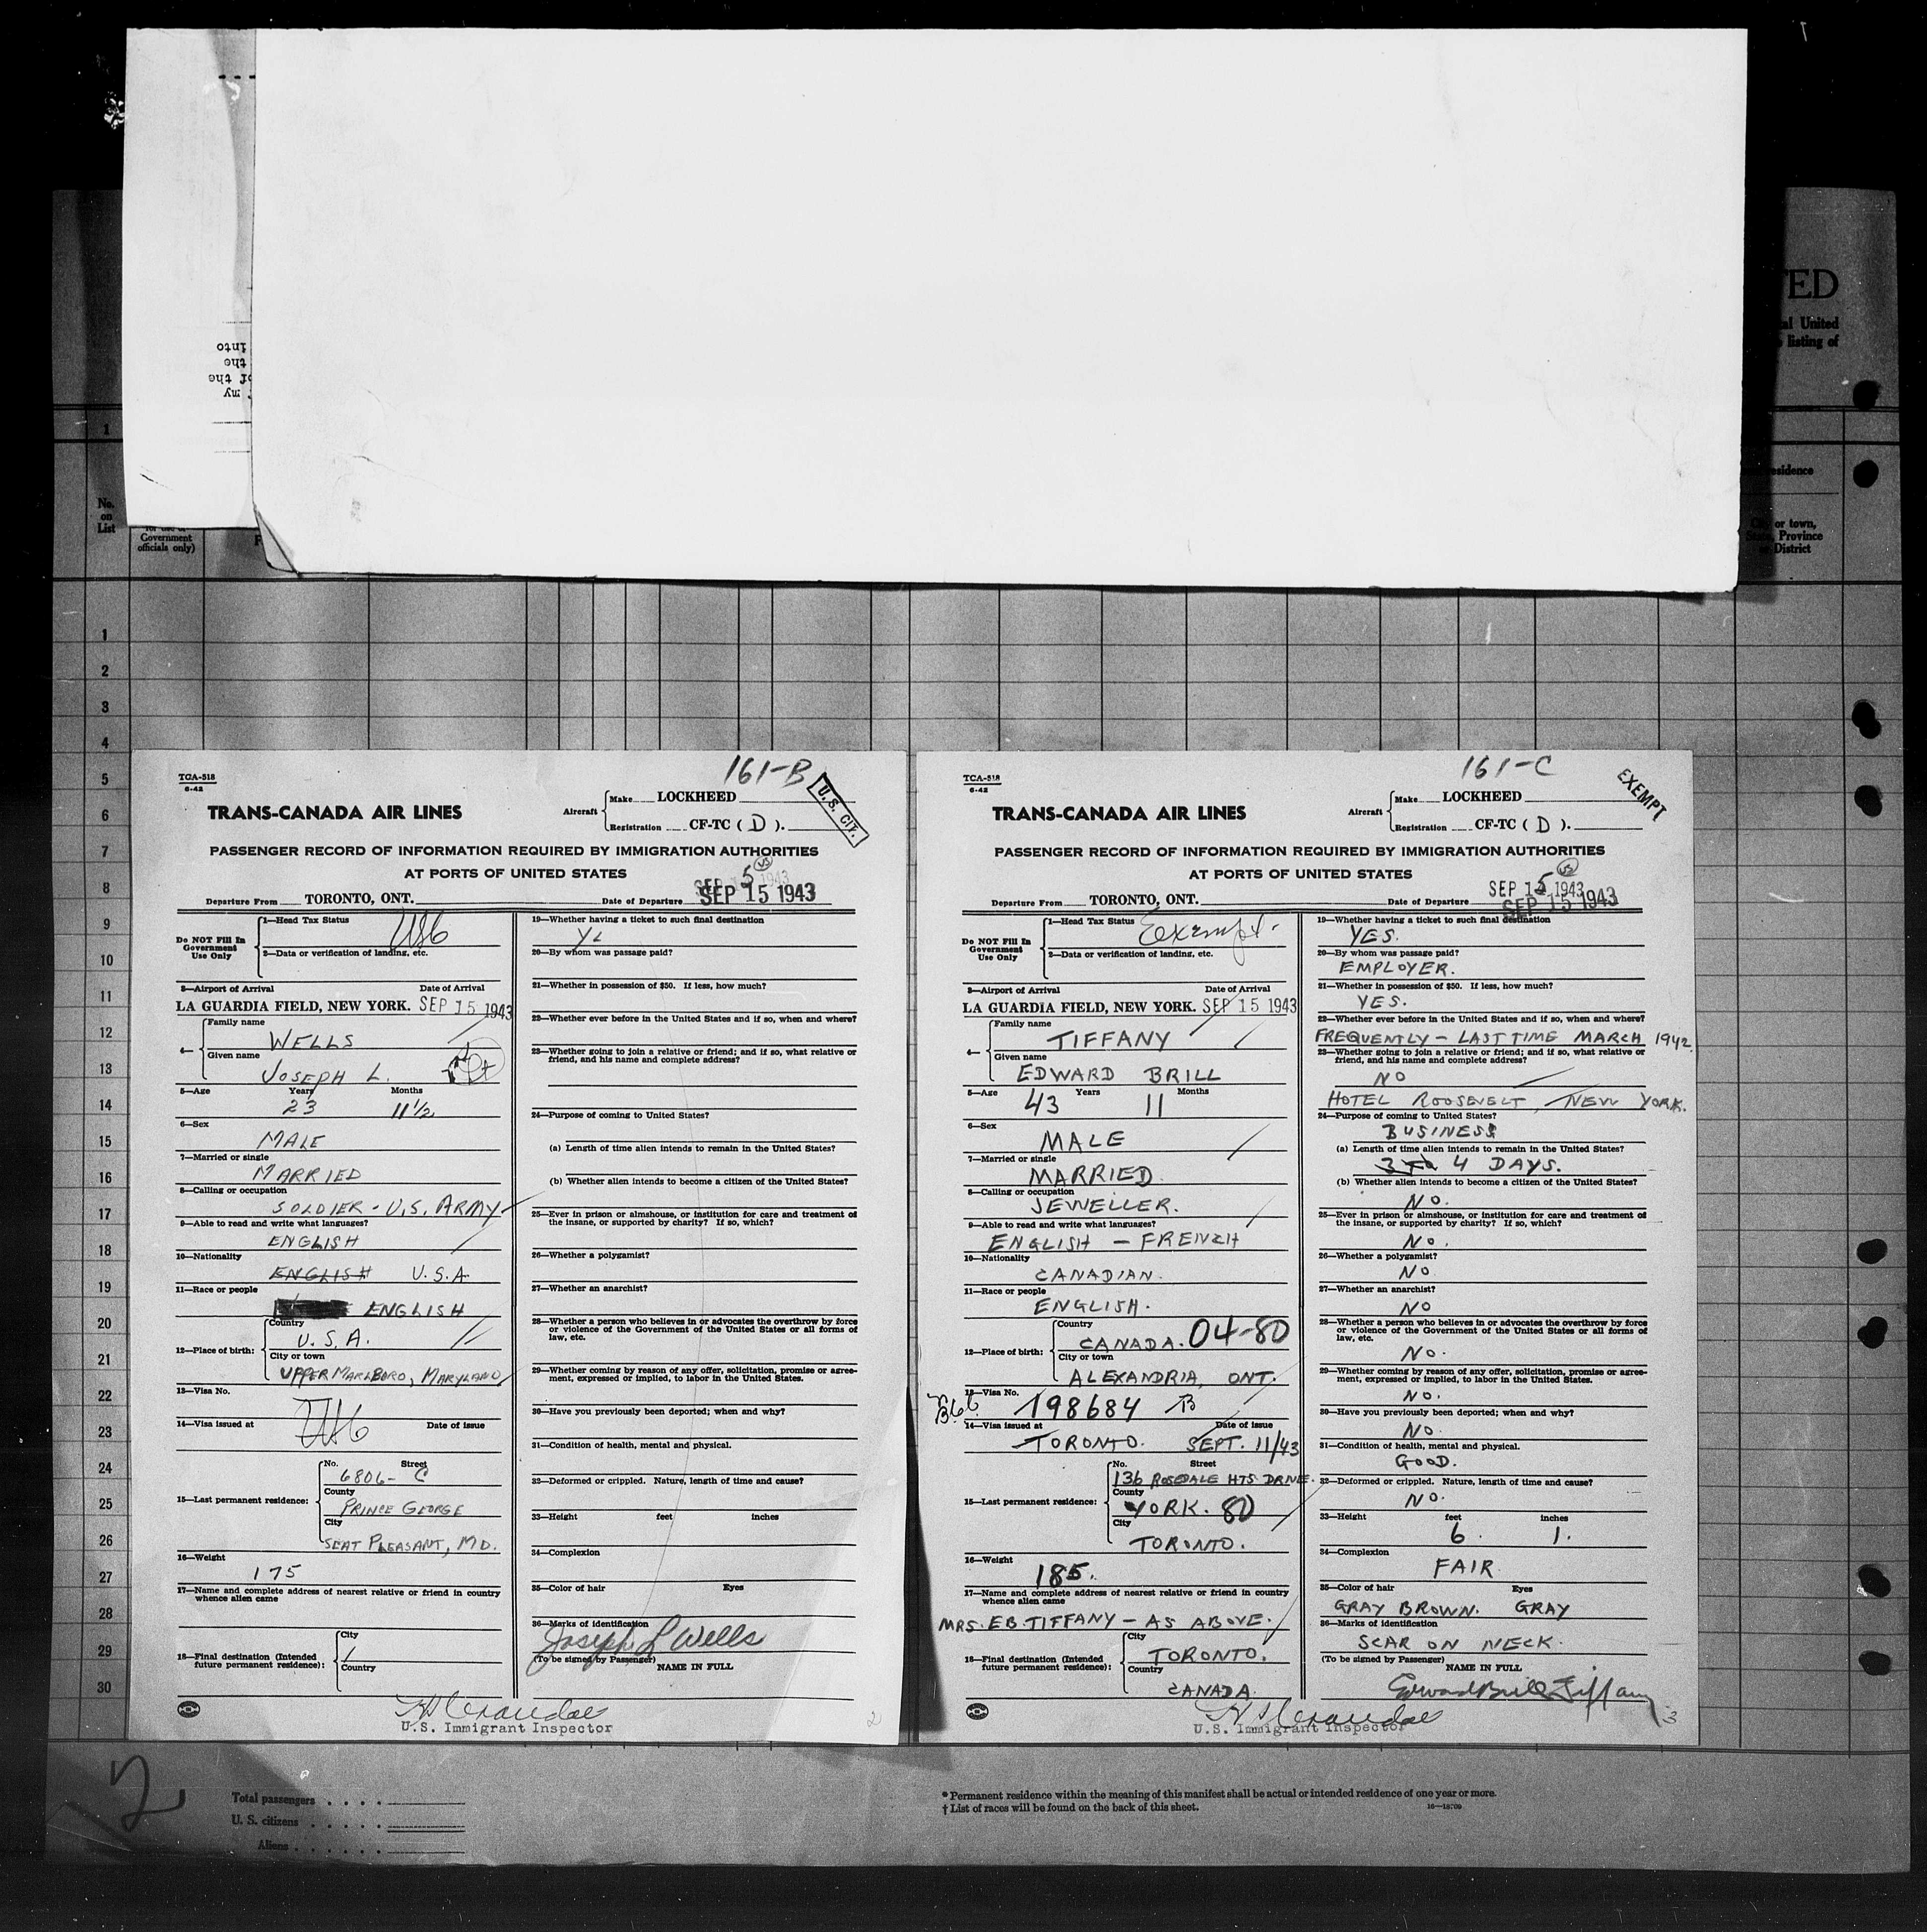 TED
al United
listing of
into
the
of the
my
1
No.
on
List
Government
officials only)
esidence
or town,
State, Province
District
1
2
3
4
5
6
7
8
9
10
11
12
13
14
15
16
17
18
19
20
21
22
23
24
25
26
27
28
29
30
161-B
TCA-518
6-42
U.S. CIT.
TRANS-CANADA AIR LINES
Aircraft
Make LOCKHEED
Registration CF-TC ( D ).
PASSENGER RECORD OF INFORMATION REQUIRED BY IMMIGRATION AUTHORITIES
AT PORTS OF UNITED STATES
SEP 15 1943
Departure From TORONTO, ONT. Date of Departure SEP 15 1943
Do NOT Fill In
Government
Use Only
1—Head Tax Status
2—Data or verification of landing, etc.
3—Airport of Arrival Date of Arrival
LA GUARDIA FIELD, NEW YORK. SEP 15 1943
4—
Family name
WELLS
Given name
JOSEPH L.
5—Age Years Months
23 11 1/2
6—Sex
MALE
7—Married or single
MARRIED
8—Calling or occupation
SOLDIER - U.S. ARMY
9—Able to read and write what languages?
ENGLISH
10—Nationality
ENGLISH U.S.A.
11—Race or people
ENGLISH
12—Place of birth:
Country
U.S.A.
City or town
UPPER MARLBORO, MARYLAND
13—Visa No.
14—Visa issued at Date of issue
15—Last permanent residence:
No. Street
6806- C
County
PRINCE GEORGE
City
SEAT PLEASANT, MD.
16—Weight
175
17—Name and complete address of nearest relative or friend in country
whence alien came
18—Final destination (Intended
future permanent residence):
City
Country
19—Whether having a ticket to such final destination
20—By whom was passage paid?
21—Whether in possession of $50. If less, how much?
22—Whether ever before in the United States and if so, when and where?
23—Whether going to join a relative or friend; and if so, what relative or
friend, and his name and complete address?
24—Purpose of coming to United States?
(a) Length of time alien intends to remain in the United States?
(b) Whether alien intends to become a citizen of the United States?
25—Ever in prison or almshouse, or institution for care and treatment of
the insane, or supported by charity? If so, which?
26—Whether a polygamist?
27—Whether an anarchist?
28—Whether a person who believes in or advocates the overthrow by force
or violence of the Government of the United States or all forms of
law, etc.
29—Whether coming by reason of any offer, solicitation, promise or agree-
ment, expressed or implied, to labor in the United States.
30—Have you previously been deported; when and why?
31—Condition of health, mental and physical.
32—Deformed or crippled. Nature, length of time and cause?
33—Height feet inches
34—Complexion
35—Color of hair Eyes
36—Marks of identification
Joseph L Wells
(To be signed by Passenger)
NAME IN FULL
U.S. Immigrant Inspector
2
161-C
TCA-518
6-42
EXEMPT
TRANS-CANADA AIR LINES
Aircraft
Make LOCKHEED
Registration CF-TC ( D ).
PASSENGER RECORD OF INFORMATION REQUIRED BY IMMIGRATION AUTHORITIES
AT PORTS OF UNITED STATES
SEP 15 1943
Departure From TORONTO, ONT. Date of Departure SEP 15 1943
Do NOT Fill In
Government
Use Only
1—Head Tax Status
Exempt.
2—Data or verification of landing, etc.
3—Airport of Arrival Date of Arrival
LA GUARDIA FIELD, NEW YORK. SEP 15 1943
4—
Family name
TIFFANY
Given name
EDWARD BRILL
5—Age Years Months
43 11
6—Sex
MALE
7—Married or single
MARRIED
8—Calling or occupation
JEWELLER.
9—Able to read and write what languages?
ENGLISH — FRENCH
10—Nationality
CANADIAN.
11—Race or people
ENGLISH.
12—Place of birth:
Country
CANADA. 04-80
City or town
ALEXANDRIA, ONT.
13—Visa No.
198684 B
14—Visa issued at Date of issue
TORONTO. SEPT. 11/43
15—Last permanent residence:
No. Street
136 ROSEDALE HTS DRIVE.
County
YORK. 80
City
TORONTO.
16—Weight
185.
17—Name and complete address of nearest relative or friend in country
whence alien came
MRS. E.B. TIFFANY — AS ABOVE.
18—Final destination (Intended
future permanent residence):
City
TORONTO.
Country
CANADA
19—Whether having a ticket to such final destination
YES.
20—By whom was passage paid?
EMPLOYER.
21—Whether in possession of $50. If less, how much?
YES.
22—Whether ever before in the United States and if so, when and where?
FREQUENTLY — LAST TIME MARCH 1942.
23—Whether going to join a relative or friend; and if so, what relative or
friend, and his name and complete address?
NO
HOTEL ROOSEVELT, NEW YORK.
24—Purpose of coming to United States?
BUSINESS
(a) Length of time alien intends to remain in the United States?
3 to 4 DAYS.
(b) Whether alien intends to become a citizen of the United States?
NO.
25—Ever in prison or almshouse, or institution for care and treatment of
the insane, or supported by charity? If so, which?
NO.
26—Whether a polygamist?
NO
27—Whether an anarchist?
NO
28—Whether a person who believes in or advocates the overthrow by force
or violence of the Government of the United States or all forms of
law, etc.
NO.
29—Whether coming by reason of any offer, solicitation, promise or agree-
ment, expressed or implied, to labor in the United States.
NO.
30—Have you previously been deported; when and why?
NO.
31—Condition of health, mental and physical.
GOOD.
32—Deformed or crippled. Nature, length of time and cause?
NO.
33—Height feet inches
6. 1.
34—Complexion
FAIR.
35—Color of hair Eyes
GRAY BROWN. GRAY
36—Marks of identification
SCAR ON NECK.
(To be signed by Passenger)
NAME IN FULL
Edward Brill Tiffany
U.S. Immigrant Inspector
3
2
Total passengers
U. S. citizens
Aliens
* Permanent residence within the meaning of this manifest shall be actual or intended residence of one year or more.
† List of races will be found on the back of this sheet.